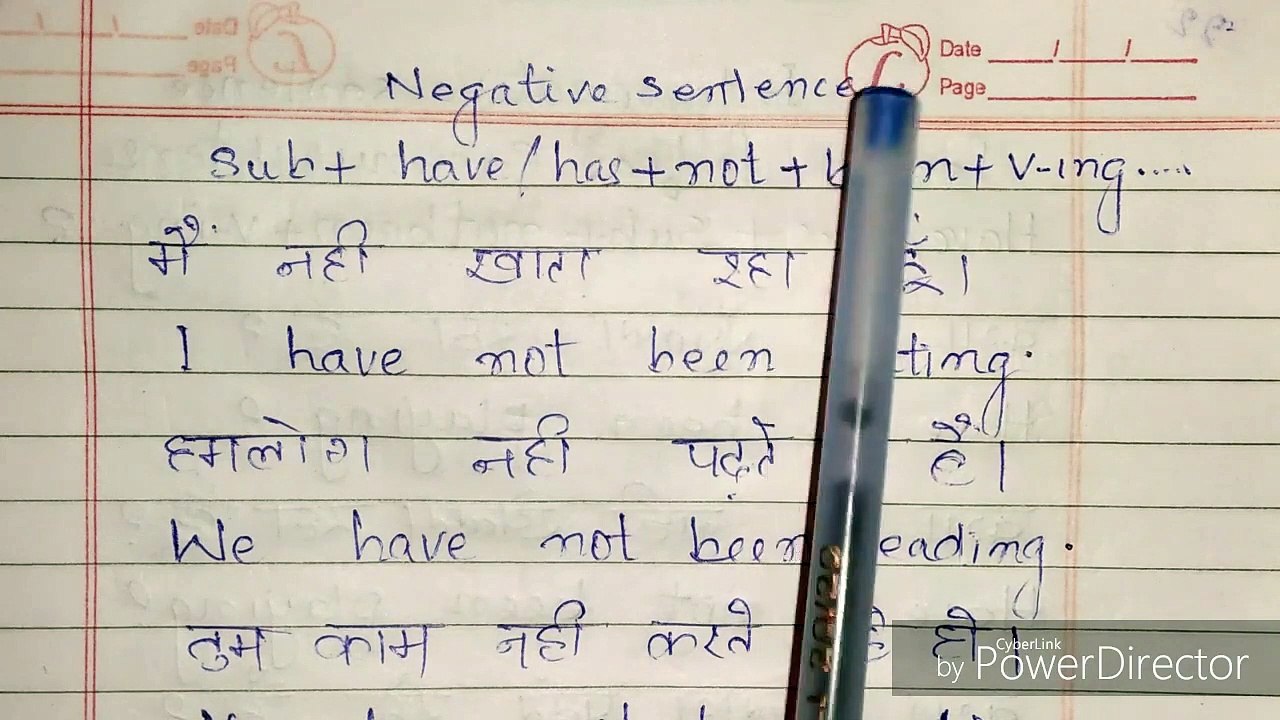 Date / /
Page
Negative sentence
Sub + have / has + not + b n + v-ing.....
मैं नही खाता रहा हूँ।
I have not been ting.
हमलोग नही पढ़ते हैं।
We have not been eading.
तुम काम नही करते हे हो।
CyberLink
by PowerDirector